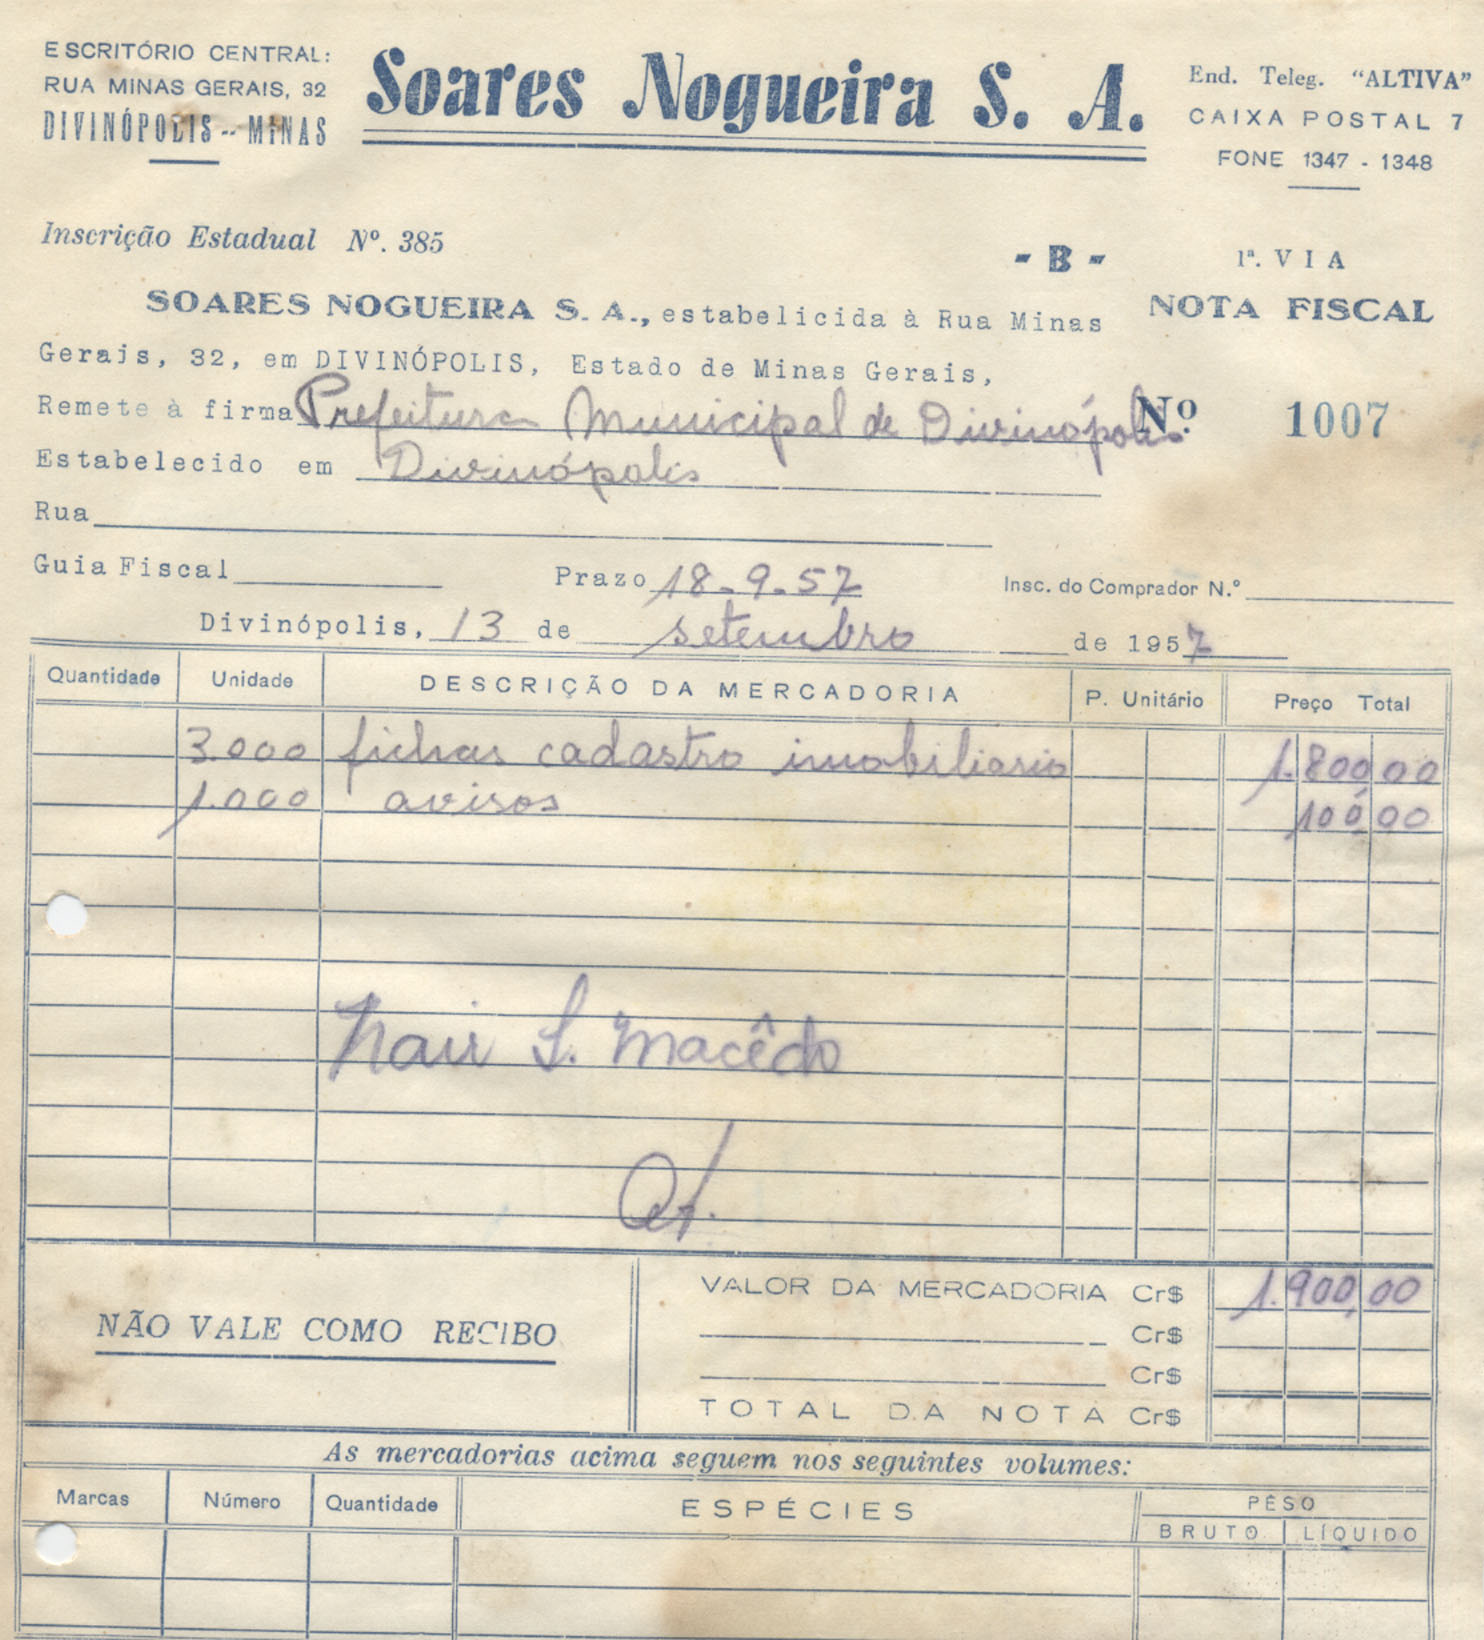 ESCRITÓRIO CENTRAL:
RUA MINAS GERAIS, 32
DIVINÓPOLIS -- MINAS
Soares Nogueira S. A.
End. Teleg. "ALTIVA"
CAIXA POSTAL 7
FONE 1347 - 1348
Inscrição Estadual Nº. 385
- B -
1ª. VIA
SOARES NOGUEIRA S. A., estabelicida à Rua Minas
NOTA FISCAL
Gerais, 32, em DIVINÓPOLIS, Estado de Minas Gerais,
Remete à firma Prefeitura Municipal de Divinópolis
Nº 1007
Estabelecido em Divinópolis
Rua
Guia Fiscal Prazo 18-9-57 Insc. do Comprador N.º
Divinópolis, 13 de setembro de 1957
Quantidade Unidade DESCRIÇÃO DA MERCADORIA P. Unitário Preço Total
3.000 fichas cadastro imobiliario 1.800,00
1.000 avisos 100,00
Nair S. Macêdo
VALOR DA MERCADORIA Cr$ 1.900,00
NÃO VALE COMO RECIBO
Cr$
Cr$
TOTAL DA NOTA Cr$
As mercadorias acima seguem nos seguintes volumes:
Marcas Número Quantidade ESPÉCIES PÊSO
BRUTO LÍQUIDO